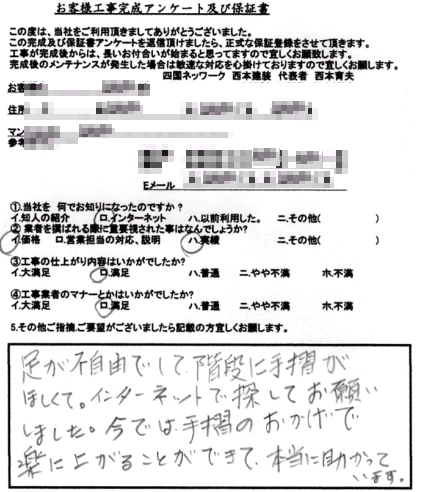 お客様工事完成アンケート及び保証書
この度は、当社をご利用頂きましてありがとうございました。
この完成及び保証書アンケートを返信頂けましたら、正式な保証登録をさせて頂きます。
工事が完成後からは、長いお付合いが始まると思ってますので宜しくお願致します。
完成後のメンテナンスが発生した場合は敏速な対応を心掛けておりますので宜しくお願します。
四国ネッワーク 西本建装 代表者 西本育夫
お客
住所
マン
参考
Eメール
①.当社を 何でお知になったのですか？
イ.知人の紹介 ロ.インターネット ハ.以前利用した。 ニ.その他( )
② 業者を撰ばれる際に重要視された事はなんでしょうか?
イ.価格 ロ.営業担当の対応、説明 ハ.実績 ニ.その他( )
③.工事の仕上がり内容はいかがでしたか?
イ.大満足 ロ.満足 ハ.普通 ニ.やや不満 ホ.不満
④.工事業者のマナーとかはいかがでしたか?
イ.大満足 ロ.満足 ハ.普通 ニ.やや不満 ホ.不満
5.その他ご指摘、ご要望がございましたら記載の方宜しくお願します。
足が不自由でして、階段に手摺が
ほしくて。インターネットで探してお願い
しました。今では手摺のおかげで
楽に上がることができて、本当に助かって
います。